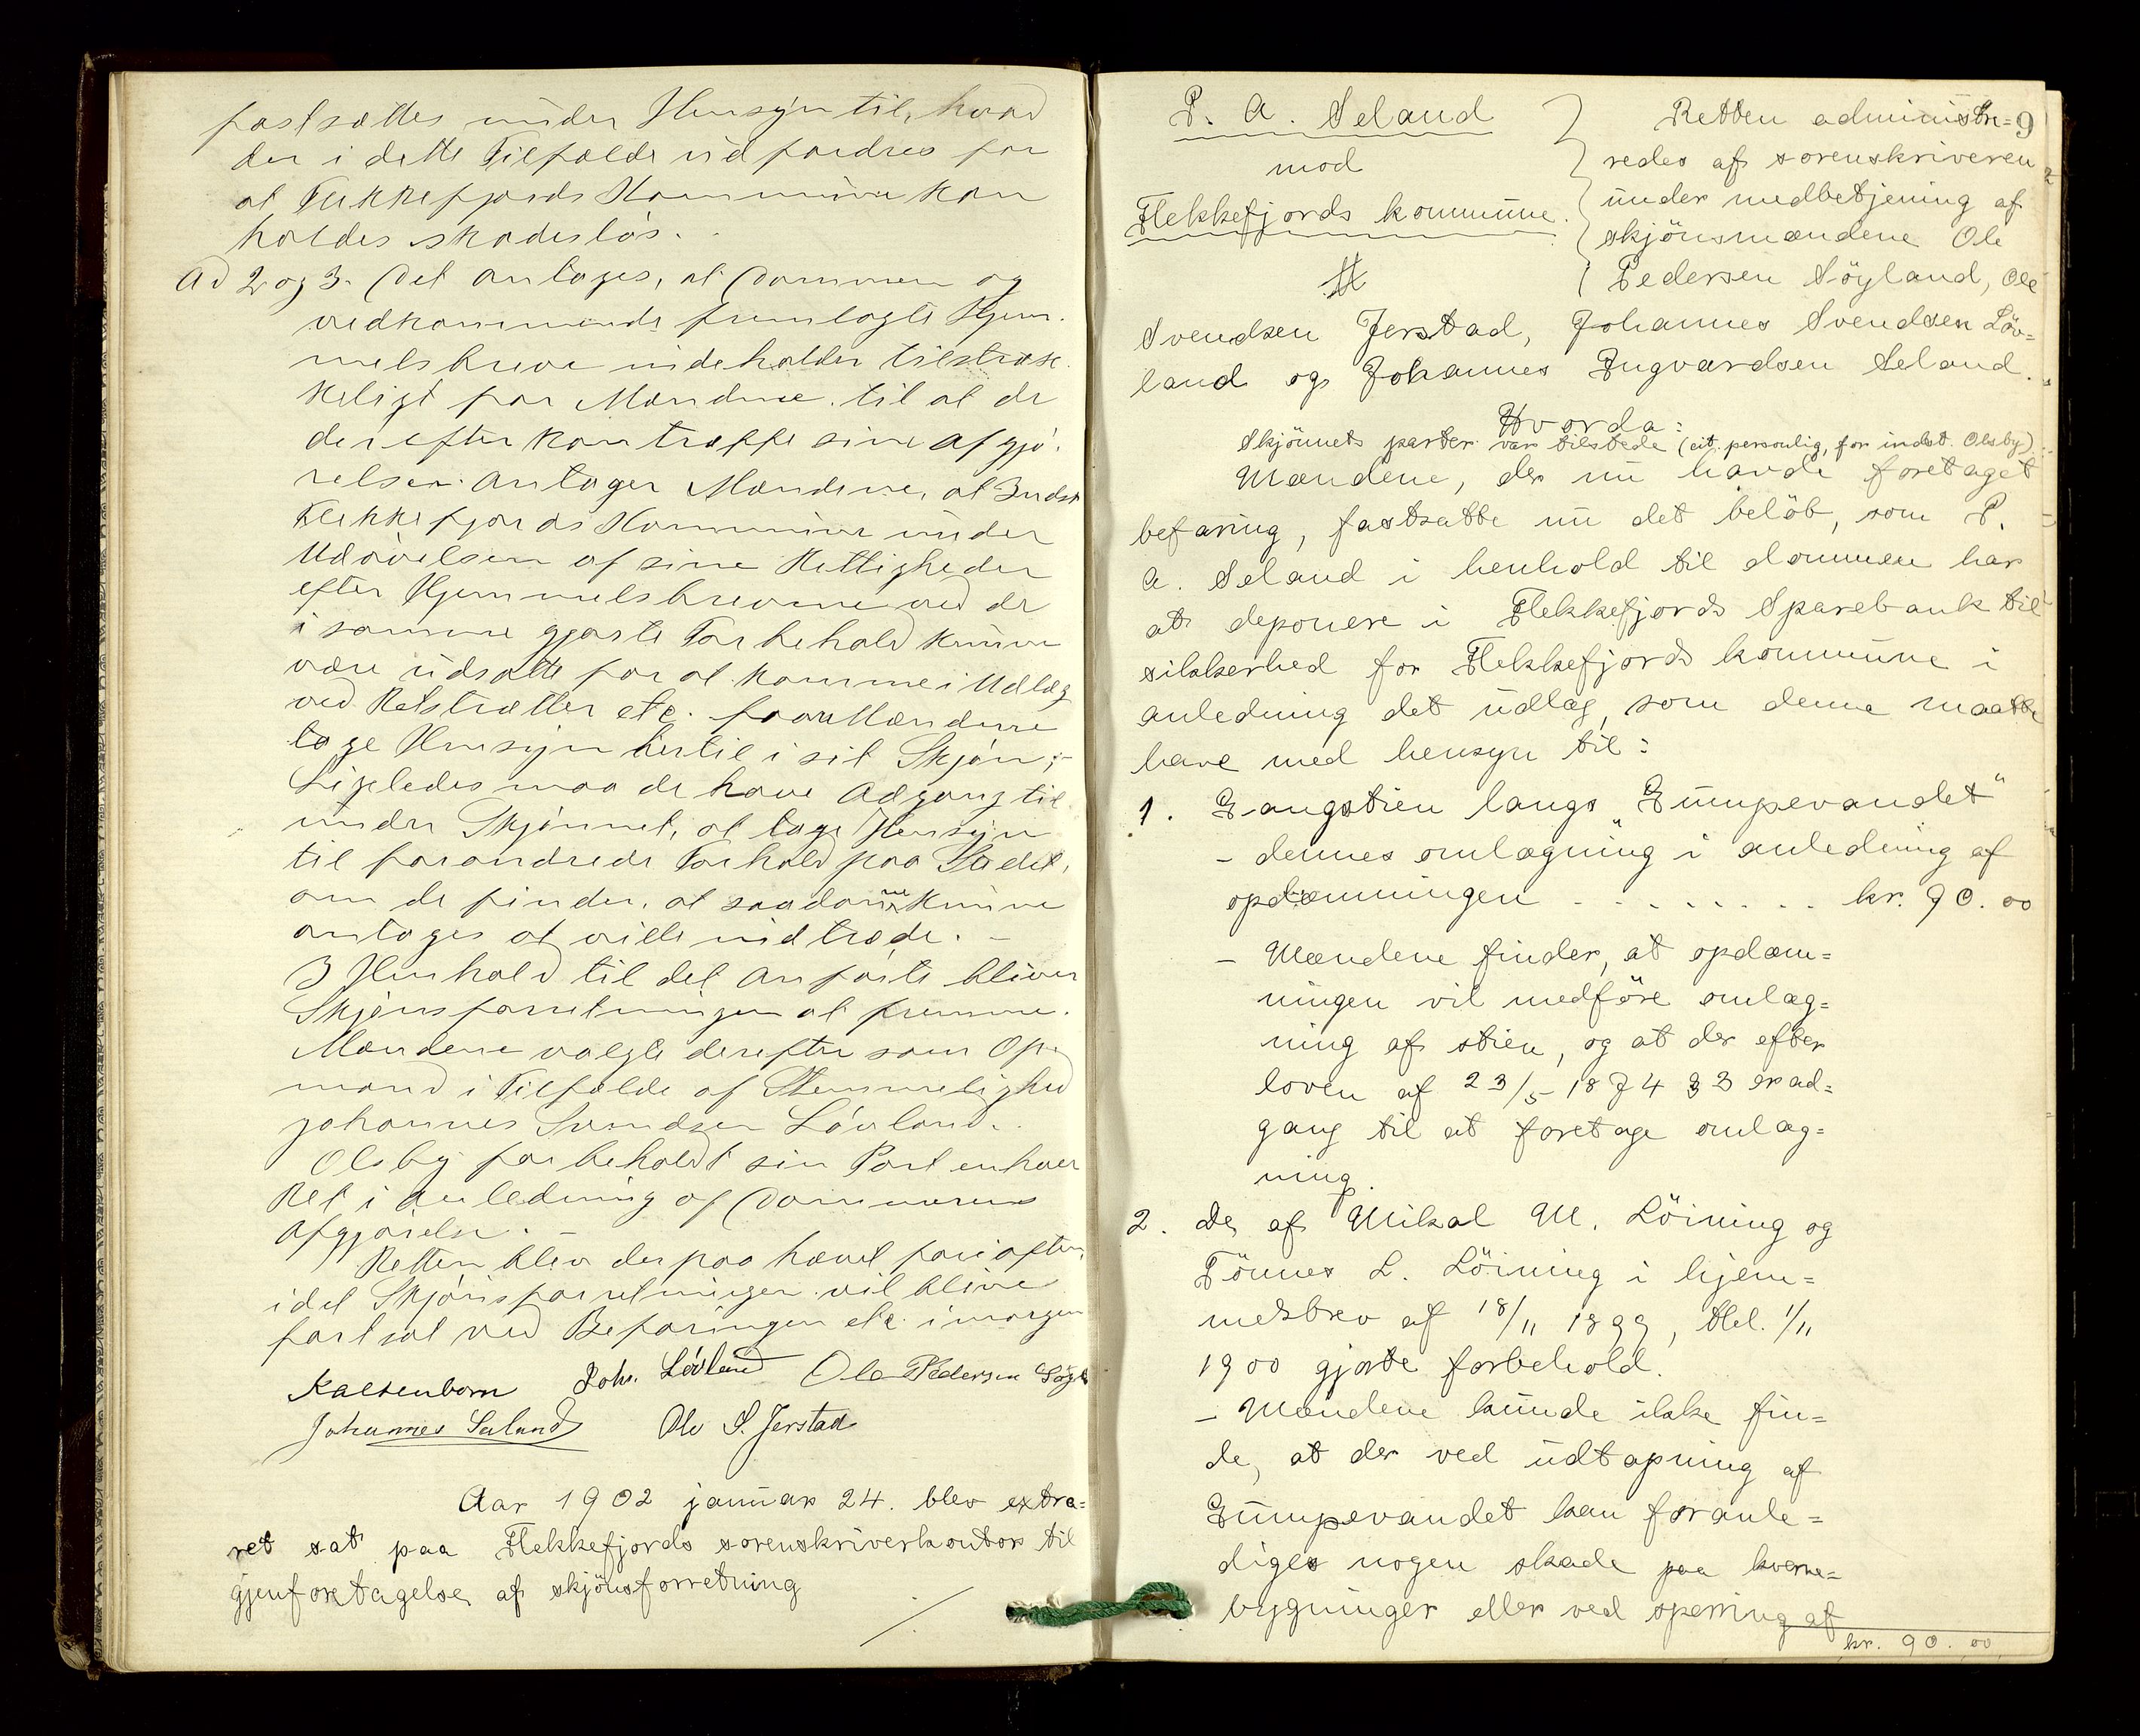 fastsættes under Hensyn til, hvad
der i dette Tilfælde udfordres for
at Flekkefjords Kommune kan
holdes skadesløs.
Ad 2 og 3. Det antages, at Dommen og
vedkommende fremlagte Hjem-
melsbreve indeholder tilstræk-
keligt for Mændene til at de
derefter kan træffe sine Afgjø-
relser. Antager Mændene, at Indst.
Flekkefjords Kommune under
Udøvelsen af sine Rettigheder
efter Hjemmelsbrevene ved de
i samme gjorte Forbehold kunne
være udsatte for at komme i Udlæg
ved Retstrætter etc. faar Mændene
tage Hensyn hertil i sit Skjøn;-
Ligeledes maa de have Adgang til
under Skjønnet, at tage Hensyn
til forandrede Forhold paa Stedet,
om de finder, at saadanne kunne
antages at ville indtræde. -
I Henhold til det anførte bliver
Skjønsforretningen at fremme.
Mændene valgte derefter som Op-
mand i Tilfælde af Stemmelighed
Johannes Svendsen Løvland.
Olsby forbeholdt sin Part enhver
Ret i Anledning af Dommerens
Afgjørelse. -
Retten blev derpaa hævet for iaften,
idet Skjønsforretningen vil blive
fortsat ved Befaringen etc. imorgen
Kaltenborn Johs. Løvland Ole Pedersen Søyl
Johannes Seland Ole S. Jerstad
Aar 1902 januar 24. blev extra-
ret sat paa Flekkefjords sorenskriverkontor til
gjenforetagelse af skjönsforretning
P. A. Seland
mod
Flekkefjords kommune.
Retten administre= 9
redes af sorenskriveren
under medbetjening af
skjönsmændene Ole
Pedersen Söyland, Ole
Svendsen Jerstad, Johannes Svendsen Löv=
land og Johannes Ingvardsen Seland.
Hvorda:
Skjönnets parter var tilstede (cit. personlig, for indst. Olsby)
Mændene, der nu havde foretaget
befaring, fastsatte nu det belöb, som P.
A. Seland i henhold til dommen har
at deponere i Flekkefjords Sparebank til
sikkerhed for Flekkefjords kommune i
anledning det udlæg, som denne maatte
have med hensyn til:
1. Gangstien langs "Gumpevandet"
- dennes omlægning i anledning af
opdæmningen - - - - - - - - kr. 90.00
- Mændene finder, at opdæm=
ningen vil medföre omlæg=
ning af stien, og at der efter
loven af 23/5 1874 § 3 er ad=
gang til at foretage omlæg=
ning.
2. De af Mikal M. Löining og
Tönnes L. Löining i hjem=
melsbrev af 18/11 1899, thl. 1/11
1900 gjorte forbehold.
- Mændene kunde ikke fin=
de, at der ved udtapning af
Gumpevandet kan foranle=
diges nogen skade paa kverne=
bygninger eller ved sperring af
kr. 90.00